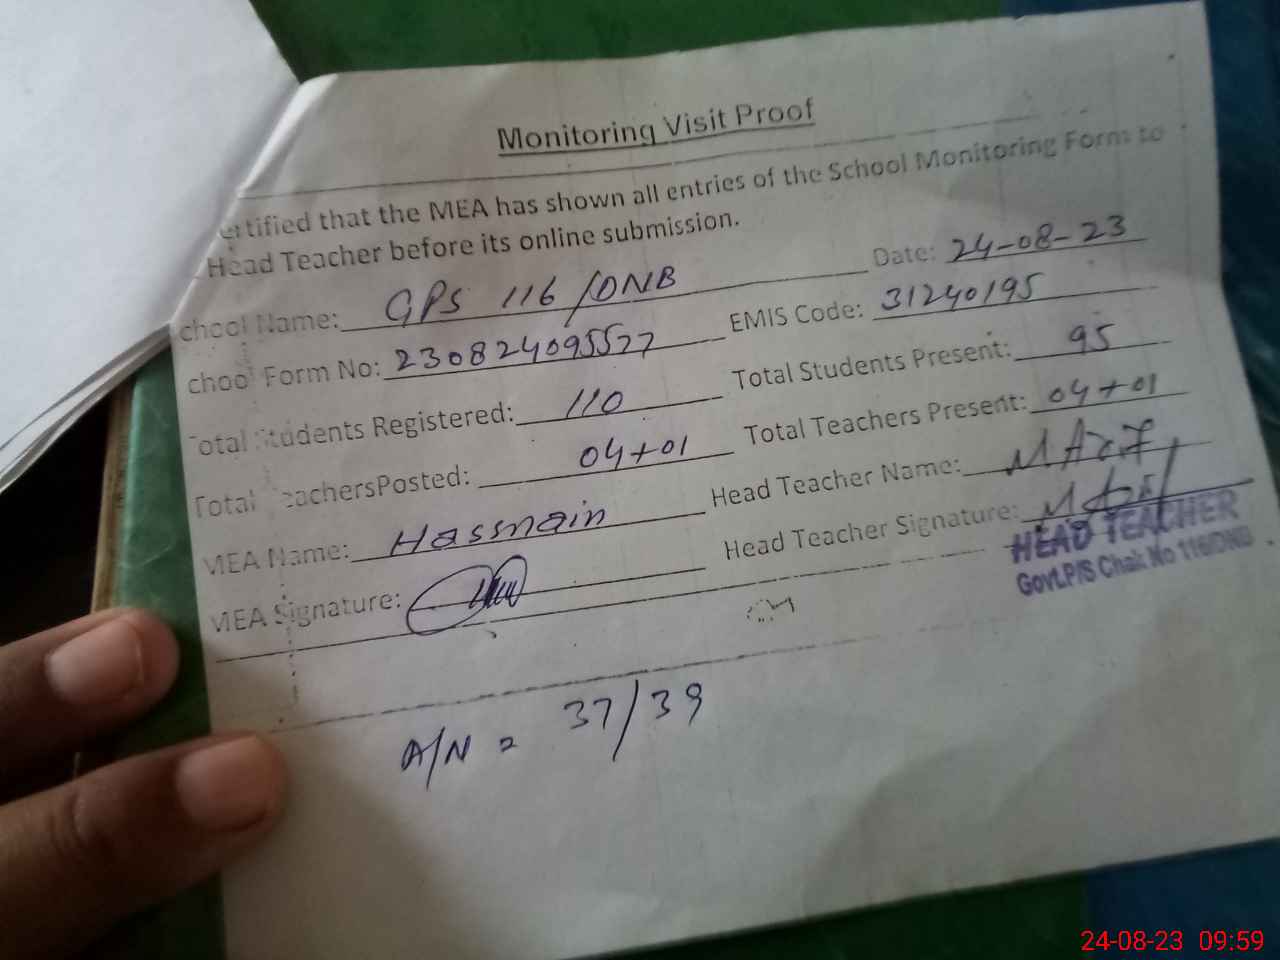 Monitoring Visit Proof
ertified that the MEA has shown all entries of the School Monitoring Form to
Head Teacher before its online submission.
chool Name: GPS 116/DNB Date: 24-08-23
chool Form No: 230824095577 EMIS Code: 31240195
Total Students Registered: 110 Total Students Present: 95
Total TeachersPosted: 04+01 Total Teachers Present: 04+01
MEA Name: Hassnain Head Teacher Name:
MEA Signature: Head Teacher Signature:
HEAD TEACHER
Govt.P/S Chak No 116/DNB
A/N = 37/39
24-08-23 09:59